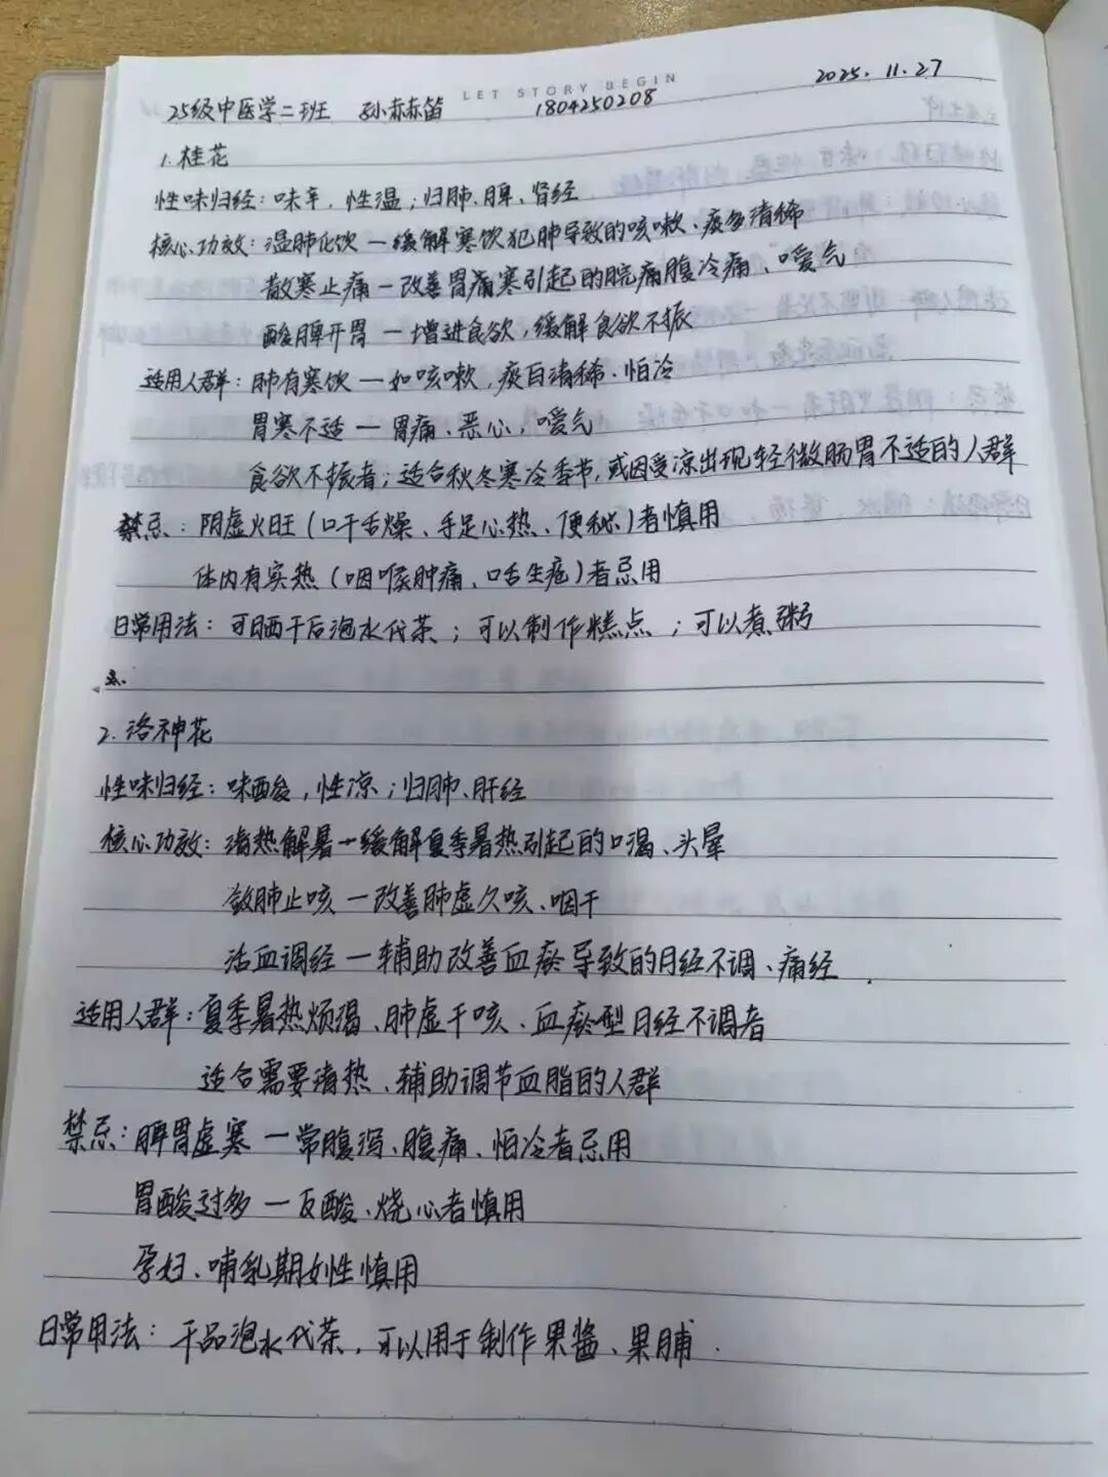 LET STORY BEGIN
2025.11.27
25级中医学二班 孙赫赫笛 1804250208
1.桂花
性味归经：味辛，性温；归肺、脾、肾经
核心功效：温肺化饮—缓解寒饮犯肺导致的咳嗽、痰多清稀
散寒止痛—改善胃寒引起的脘痛腹冷痛、嗳气
酸脾开胃—增进食欲，缓解食欲不振
适用人群：肺有寒饮—如咳嗽，痰白清稀、怕冷
胃寒不适—胃痛、恶心，嗳气
食欲不振者；适合秋冬寒冷季节，或因受凉出现轻微肠胃不适的人群
禁忌：阴虚火旺（口干舌燥、手足心热、便秘）者慎用
体内有实热（咽喉肿痛、口舌生疮）者忌用
日常用法：可晒干后泡水代茶；可以制作糕点；可以煮粥
2.洛神花
性味归经：味酸，性凉；归肺、肝经
核心功效：清热解暑—缓解夏季暑热引起的口渴、头晕
敛肺止咳—改善肺虚久咳、咽干
活血调经—辅助改善血瘀导致的月经不调、痛经
适用人群：夏季暑热烦渴、肺虚干咳、血瘀型月经不调者
适合需要清热、辅助调节血脂的人群
禁忌：脾胃虚寒—常腹泻、腹痛、怕冷者忌用
胃酸过多—反酸、烧心者慎用
孕妇、哺乳期女性慎用
日常用法：干品泡水代茶，可以用于制作果酱、果脯.